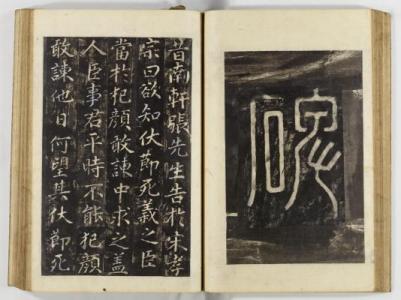 昔南軒張先生告於宋孝
宗曰欲知伏節死義之臣
當於犯顏敢諫中求之蓋
人臣事君平時不能犯顏
敢諫他日何望其伏節死